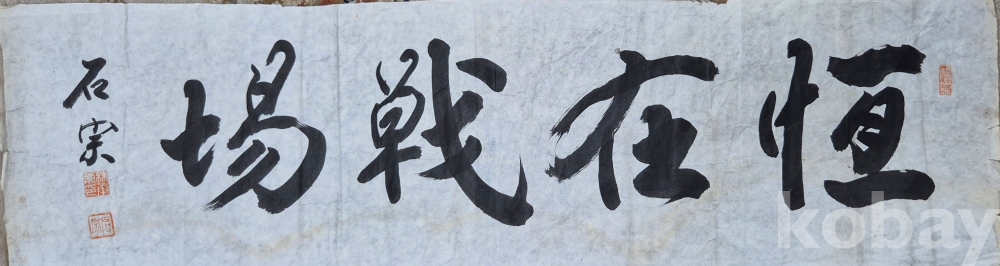 恒在戦場
石宗
kobay